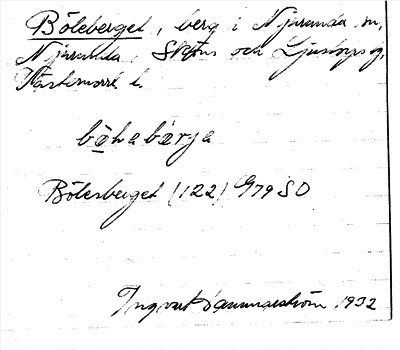 Böleberget, berg i Njurunda sn,
Njurunda, Sköns och Ljustorps tg,
Västernorrl. l.
böhabærja
Bölesberget (122) G79 SO
Ingvar Hammarström 1932